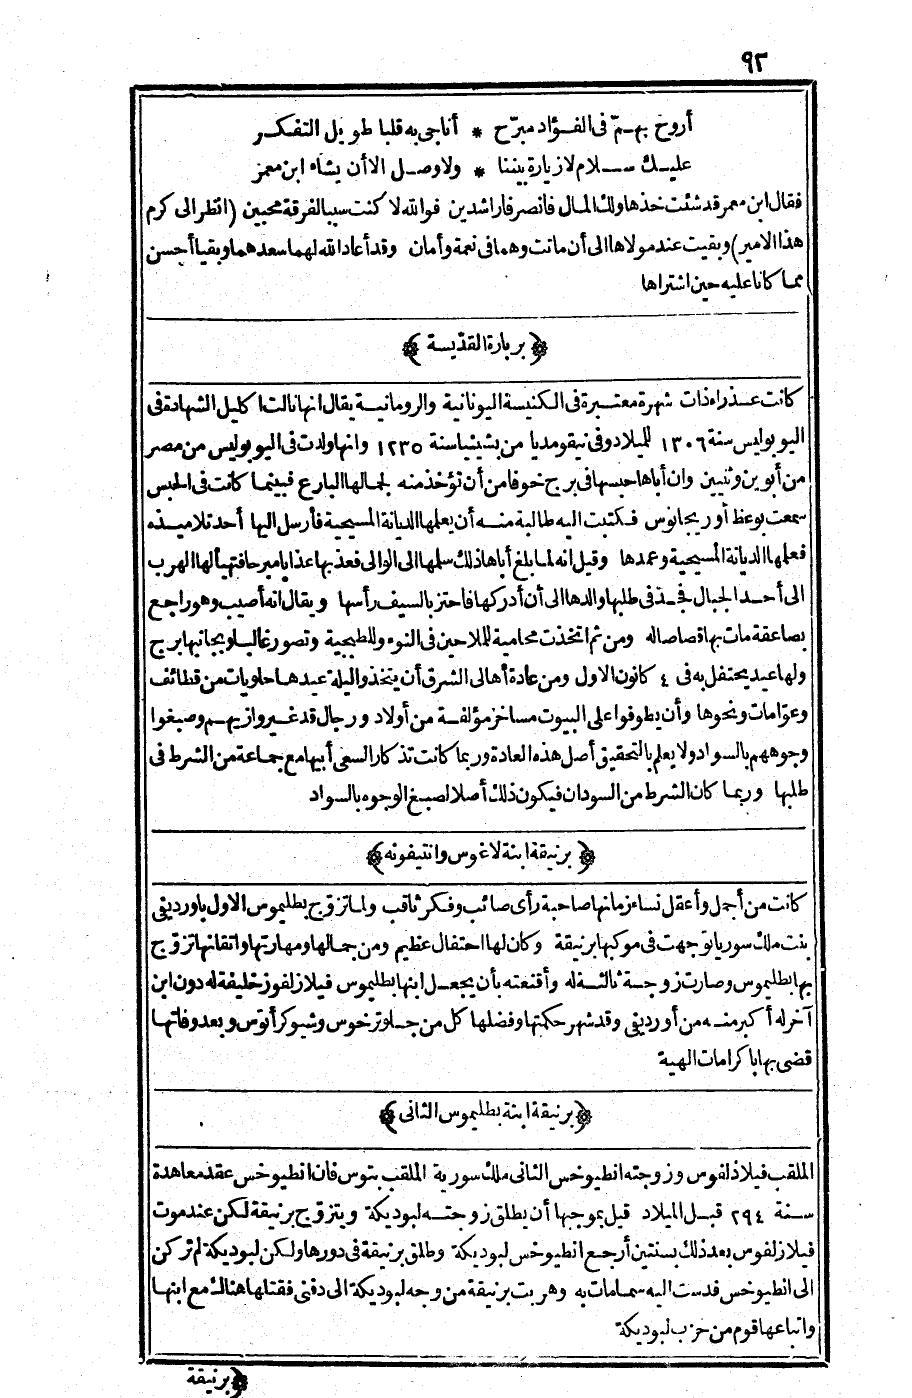 ٩٢
أروح بهمّ فى الفؤاد مبرّح * أناجى به قلبا طويل التفكر
عليك سلام لا زيارة بيننا * ولا وصل الا أن يشاء ابن معمر
فقال ابن معمر قد شئت خذها ولك المال فانصرفا راشدين فوالله لا كنت سببا لفرقة محبين (انظر الى كرم
هذا الامير) وبقيت عند مولاها الى أن ماتت وهما فى نعمة وأمان وقد أعاد الله لهما سعدهما وبقيا أحسن
مما كانا عليه حين اشتراها
﴿بربارة القديسة﴾
كانت عذراء ذات شهرة معتبرة فى الكنيسة اليونانية والرومانية يقال انها نالت اكليل الشهادة فى
اليوبوليس سنة ١٣٠٦ للميلاد وفى نيقومديا من بثينيا سنة ١٢٣٥ وانها ولدت فى اليوبوليس من مصر
من أبوين وثنيين وان أباها حبسها فى برج خوفا من أن تؤخذ منه لجمالها البارع فبينما كانت فى الحبس
سمعت بوعظ أوريجانوس فكتبت اليه طالبة منه أن يعلمها الديانة المسيحية فأرسل اليها أحد تلاميذه
فعلمها الديانة المسيحية وعمدها وقيل انه لما بلغ أباها ذلك سلمها الى الوالى فعذبها عذابا مبرحا فتهيأ لها الهرب
الى أحد الجبال فجد فى طلبها والدها الى أن أدركها فاحتز بالسيف رأسها ويقال انه أصيب وهو راجع
بصاعقة مات بها قصاصا له ومن ثم اتخذت محامية للملاحين فى النوء وللطبجية وتصور غالبا وبجانبها برج
ولها عيد يحتفل به فى ٤ كانون الاول ومن عادة أهالى الشرق أن يتخذوا ليلة عيدها حلويات من قطائف
وعوّامات ونحوها وأن يطوفوا على البيوت مساخر مؤلفة من أولاد ورجال قد غيروا زيهم وصبغوا
وجوههم بالسواد ولا يعلم بالتحقيق أصل هذه العادة وربما كانت تذكار السعى أبيها مع جماعة من الشرط فى
طلبها وربما كان الشرط من السودان فيكون ذلك أصلا لصبغ الوجوه بالسواد
﴿برنيقة ابنة لاغوس وانتيفونه﴾
كانت من أجمل وأعقل نساء زمانها صاحبة رأى صائب وفكر ثاقب ولما تزوج بطليموس الاول باورديفى
بنت ملك سوريا توجهت فى موكبها برنيقة وكان لها احتفال عظيم ومن جمالها ومهارتها واتقانها تزوج
بها بطليموس وصارت زوجة ثالثة له وأقنعته بأن يجعل ابنها بطليموس فيلازلفوز خليفة له دون ابن
آخر له أكبر منه من أورديفى وقد شهر حكمتها وفضلها كل من بلوترخوس وثيوكرأتوس وبعد وفاتها
قضى بها باكرامات الهية
﴿برنيقة ابنة بطليموس الثانى﴾
الملقب فيلادلفوس وزوجته انطيوخس الثانى ملك سورية الملقب بتوس فان انطيوخس عقد معاهدة
سنة ٢٩٤ قبل الميلاد قيل بموجبها أن يطلق زوجته لبوديكة ويتزوج برنيقة لكن عند موت
فيلازلفوس بعد ذلك بسنتين أرجع انطيوخس لبوديكة وطلق برنيقة فى دورها ولكن لبوديكة لم تركن
الى انطيوخس فدست اليه سما مات به وهربت برنيقة من وجه لبوديكة الى دفنى فقتلها هنالك مع ابنها
واتباعها قوم من حزب لبوديكة
﴿برنيقة